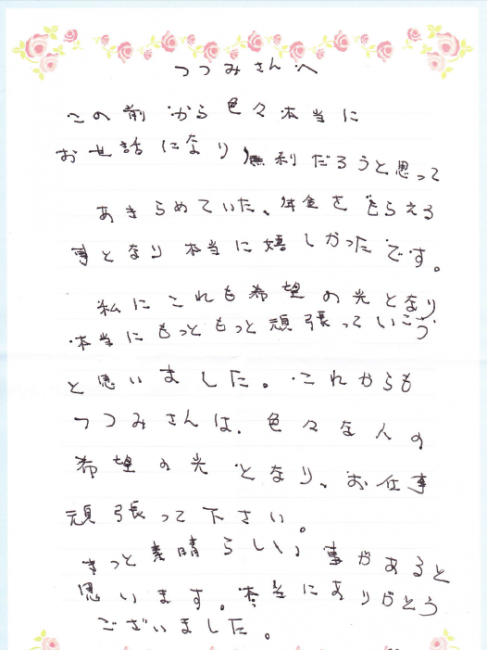 つつみさんへ
この前から色々本当に
お世話になり無利だろうと思って
あきらめていた、年金をもらえる
事となり本当に嬉しかったです。
私にこれも希望の光となり
本当にもっともっと頑張っていこう
と思いました。これからも
つつみさんは、色々な人の
希望の光となり、お仕事
頑張って下さい。
きっと素晴らしい事があると
思います。本当にありがとう
ございました。